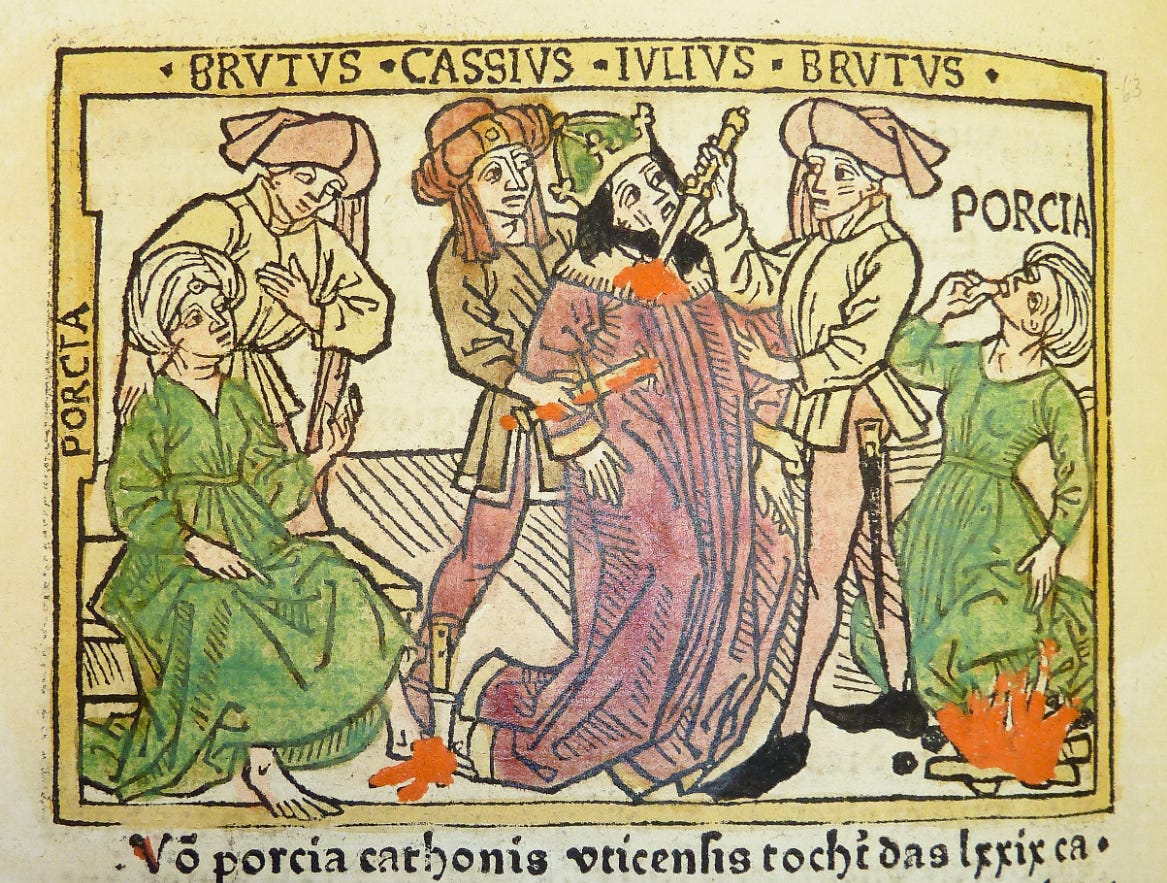 · BRVTVS · CASSIVS · IVLIVS · BRVTVS ·
63
PORCIA
PORCIA
Võ porcia cathonis vticensis tocht̃ das lxxix ca·